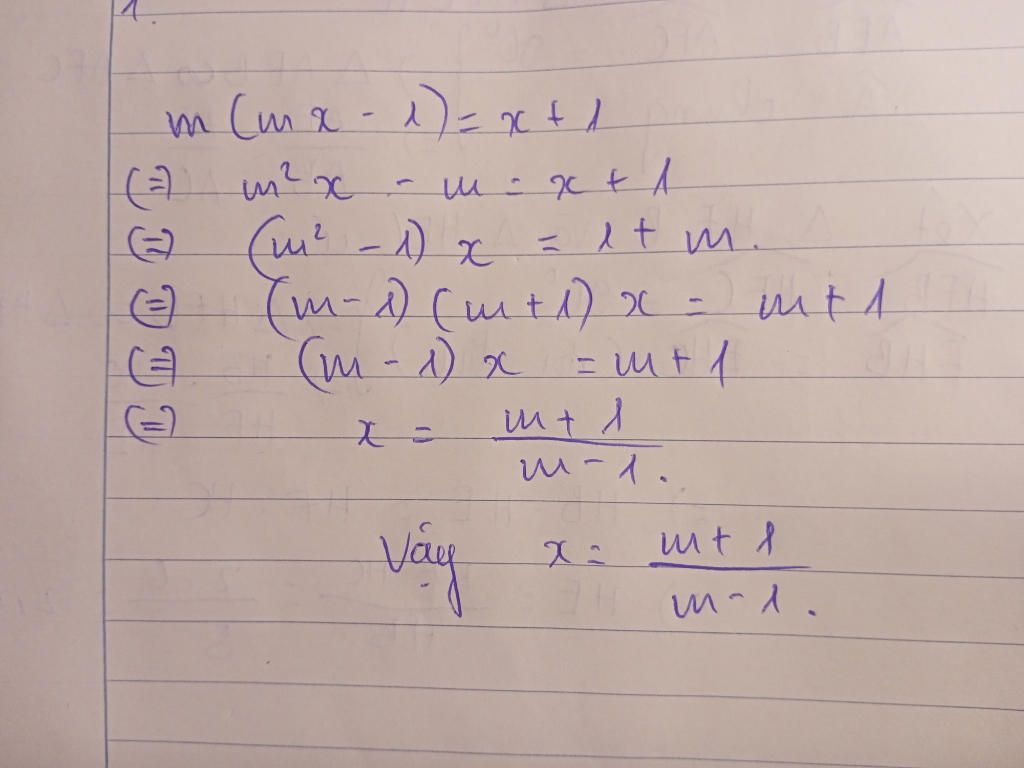 1.
m(mx - 1) = x + 1
(=) m²x - m = x + 1
(=) (m² - 1) x = 1 + m.
(=) (m - 1) (m + 1) x = m + 1
(=) (m - 1) x = m + 1
(=) x = \frac{m + 1}{m - 1}.
Vậy x = \frac{m + 1}{m - 1}.